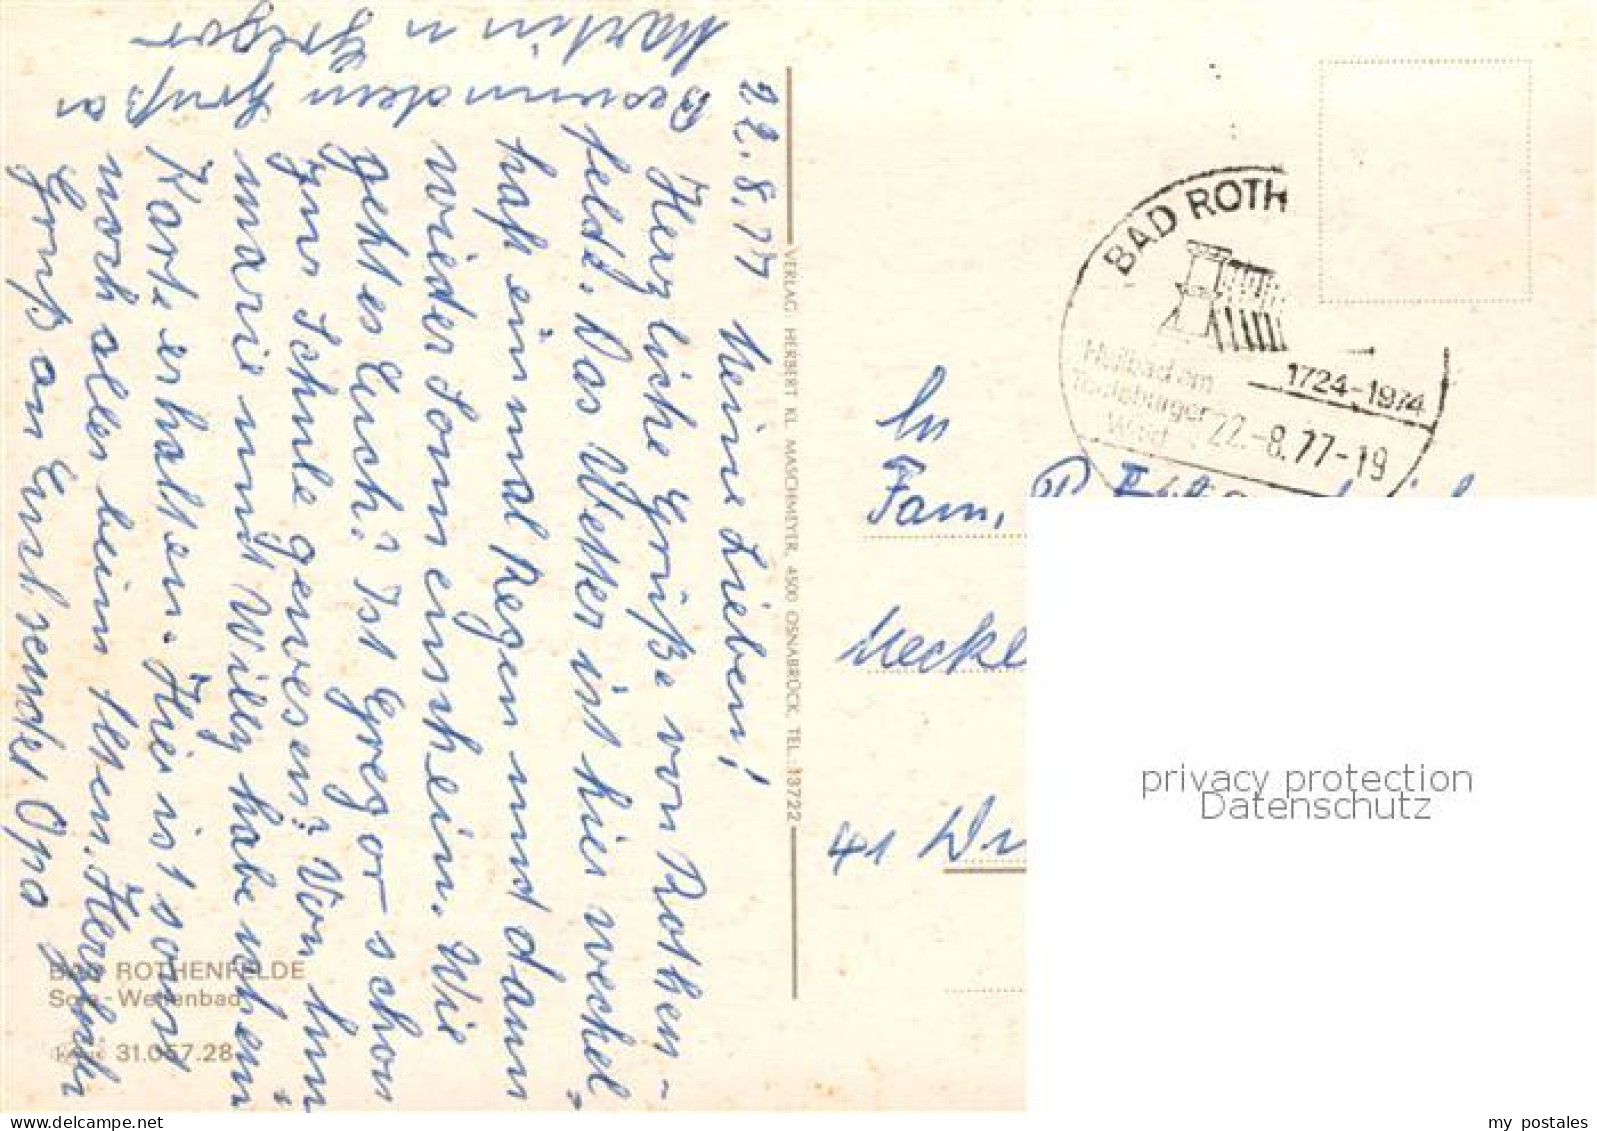 22.8.77 Meine Lieben!
Herzliche Grüße von Rothen-
felde. Das Wetter ist hier wechsel
haft einmal Regen und dann
wieder Sonnenschein. Wie
geht es Euch? Ist Gregor schon
zur Schule gewesen? Von
marie und Willy habe ich eine
Karte erhalten. Hier ist sonst
noch alles beim Alten. Herzlichen
Gruß an Euch sendet Opa
Besonderen Gruß an
Martin u Gregor
VERLAG HERBERT KL. MASCHMEYER, 4500 OSNABRÜCK, TEL. 13722
BAD ROTHENFELDE
Sole-Wellenbad
31.057.28
BAD ROTH
Heilbad am
Teutoburger
Wald
1724-1974
22.-8.77-19
An
Fam.
Meckl
41 Du
privacy protection
Datenschutz
my postales
www.delcampe.net